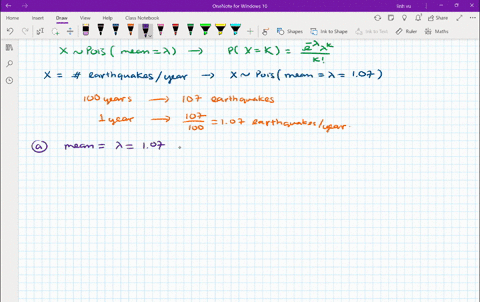 OneNote for Windows 10
Home Insert Draw View Help Class Notebook
X ~ Pois(mean = λ) → P(X = K) = e^-λ λ^K / K!
X = # earthquakes/year → X ~ Pois(mean = λ = 1.07)
100 years → 107 earthquakes
1 year → 107/100 = 1.07 earthquakes/year
(a) mean = λ = 1.07